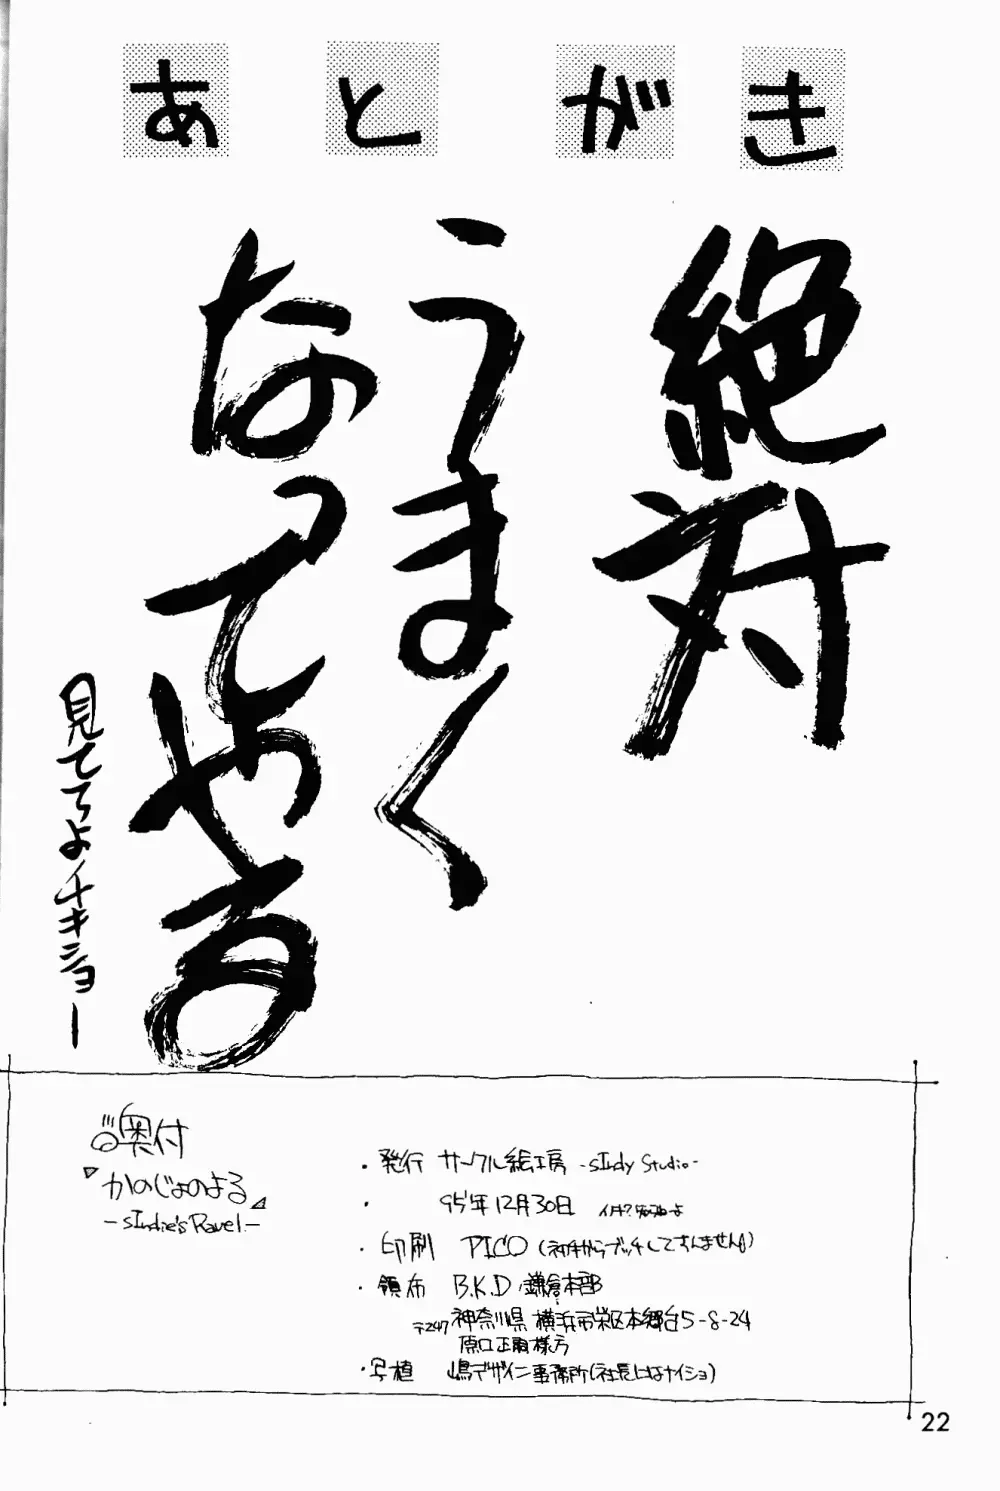 あとがき
絶対
うまく
なってやる
見てろよチキショー
奥付
「かのじょのよる」
-sIndie's Ravel-
・発行 サークル絵工房 -sIndy Studio-
・ 95年12月30日
・印刷 PICO
・領布 B.K.D 鎌倉本部
〒247 神奈川県横浜市栄区本郷台5-8-24
様方
・写植 嶋デザイン事務所(社長にはナイショ)
22